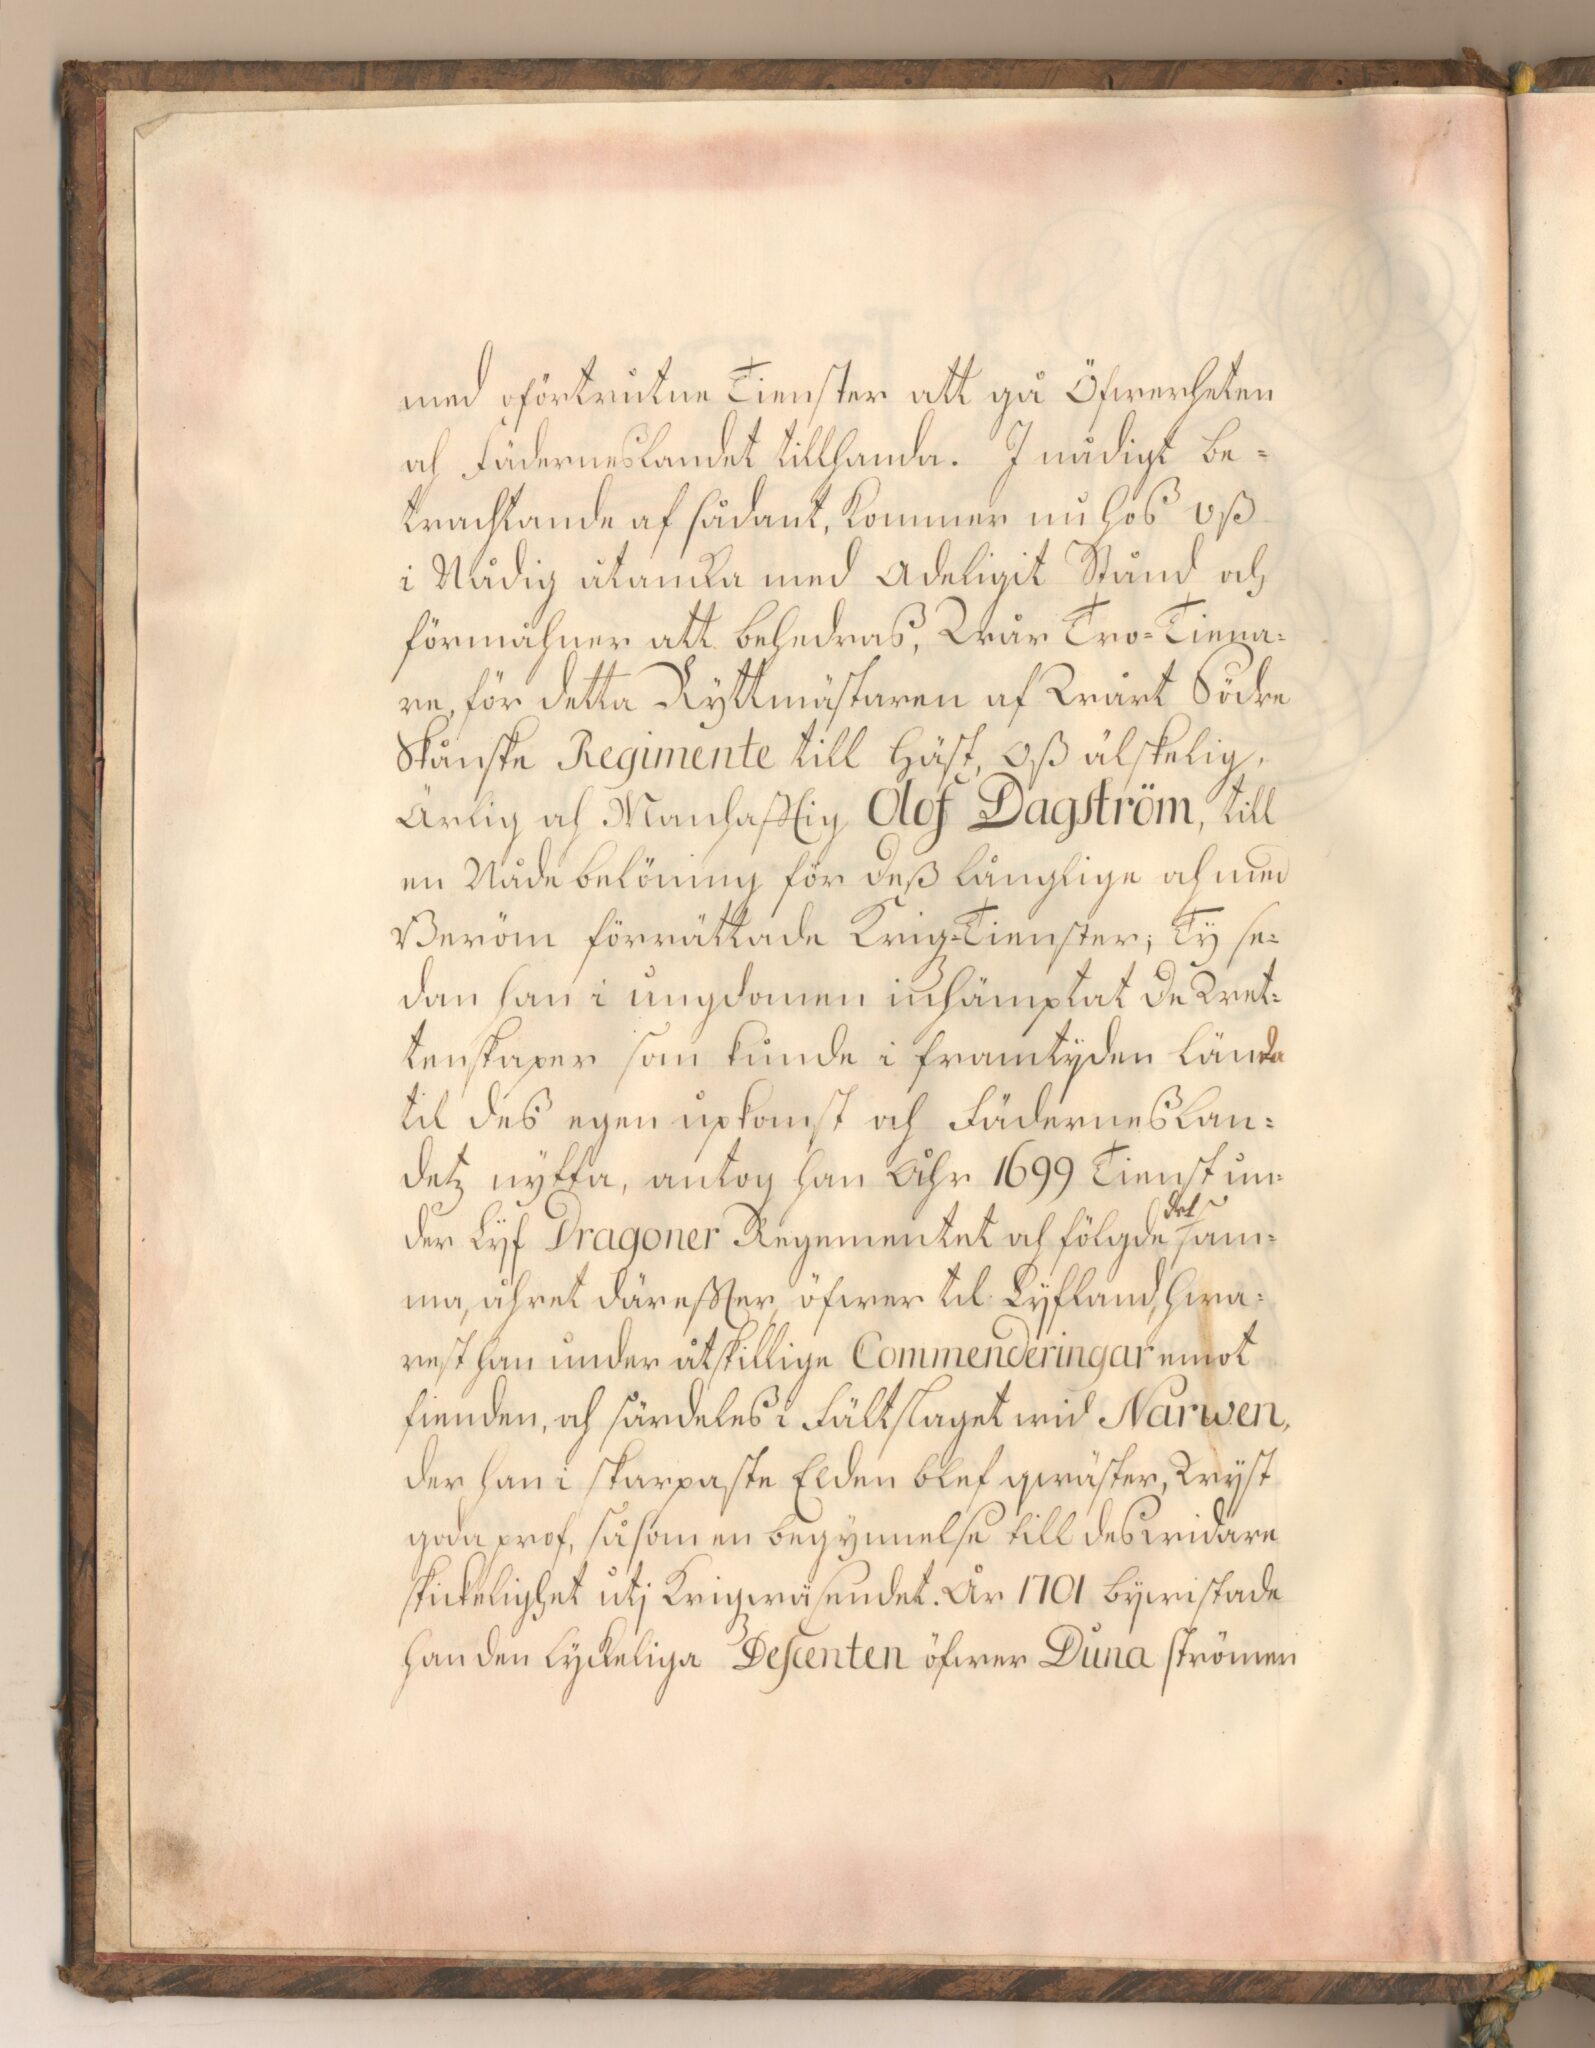 med oförtrutne Tienster att gå Öfwerheten
och Fäderneslandet tillhanda. I nådigt be=
trachtande af sådant, kommer nu hos Oß
i Nådig åtancka med Adeligit Stånd och
förmåhner att behedras, Wår Tro=Tiena=
re, för detta Ryttmästaren af Wårt Södre
Skånske Regimente till Häst, Oß älskelig,
Ärlig och Manhafftig Olof Dagström, till
en Nåde belöning för deß långlige och med
Beröm förrättade Krigz=Tienster; Ty se=
dan han i ungdomen inhämptat de Wet=
tenskaper som kunde i framtyden lända
til des egen upkomst och Fäderneslan=
detz nytta, antog han Åhr 1699 Tienst un=
der Lyf Dragoner Regementet och fölgde det sam=
ma, åhret däreffter, öfwer til Lyfland, hwa=
rest han under åtskillige Commenderingar emot
fienden, och särdeles i Fältslaget wid Narwen,
der han i skarpaste Elden blef qwäster, Wyst
goda prof, såsom en begynnelse till des widare
skickelighet utj Krigzwäsendet. År 1701 bywistade
han den lyckeliga Descenten öfwer Duna strömen